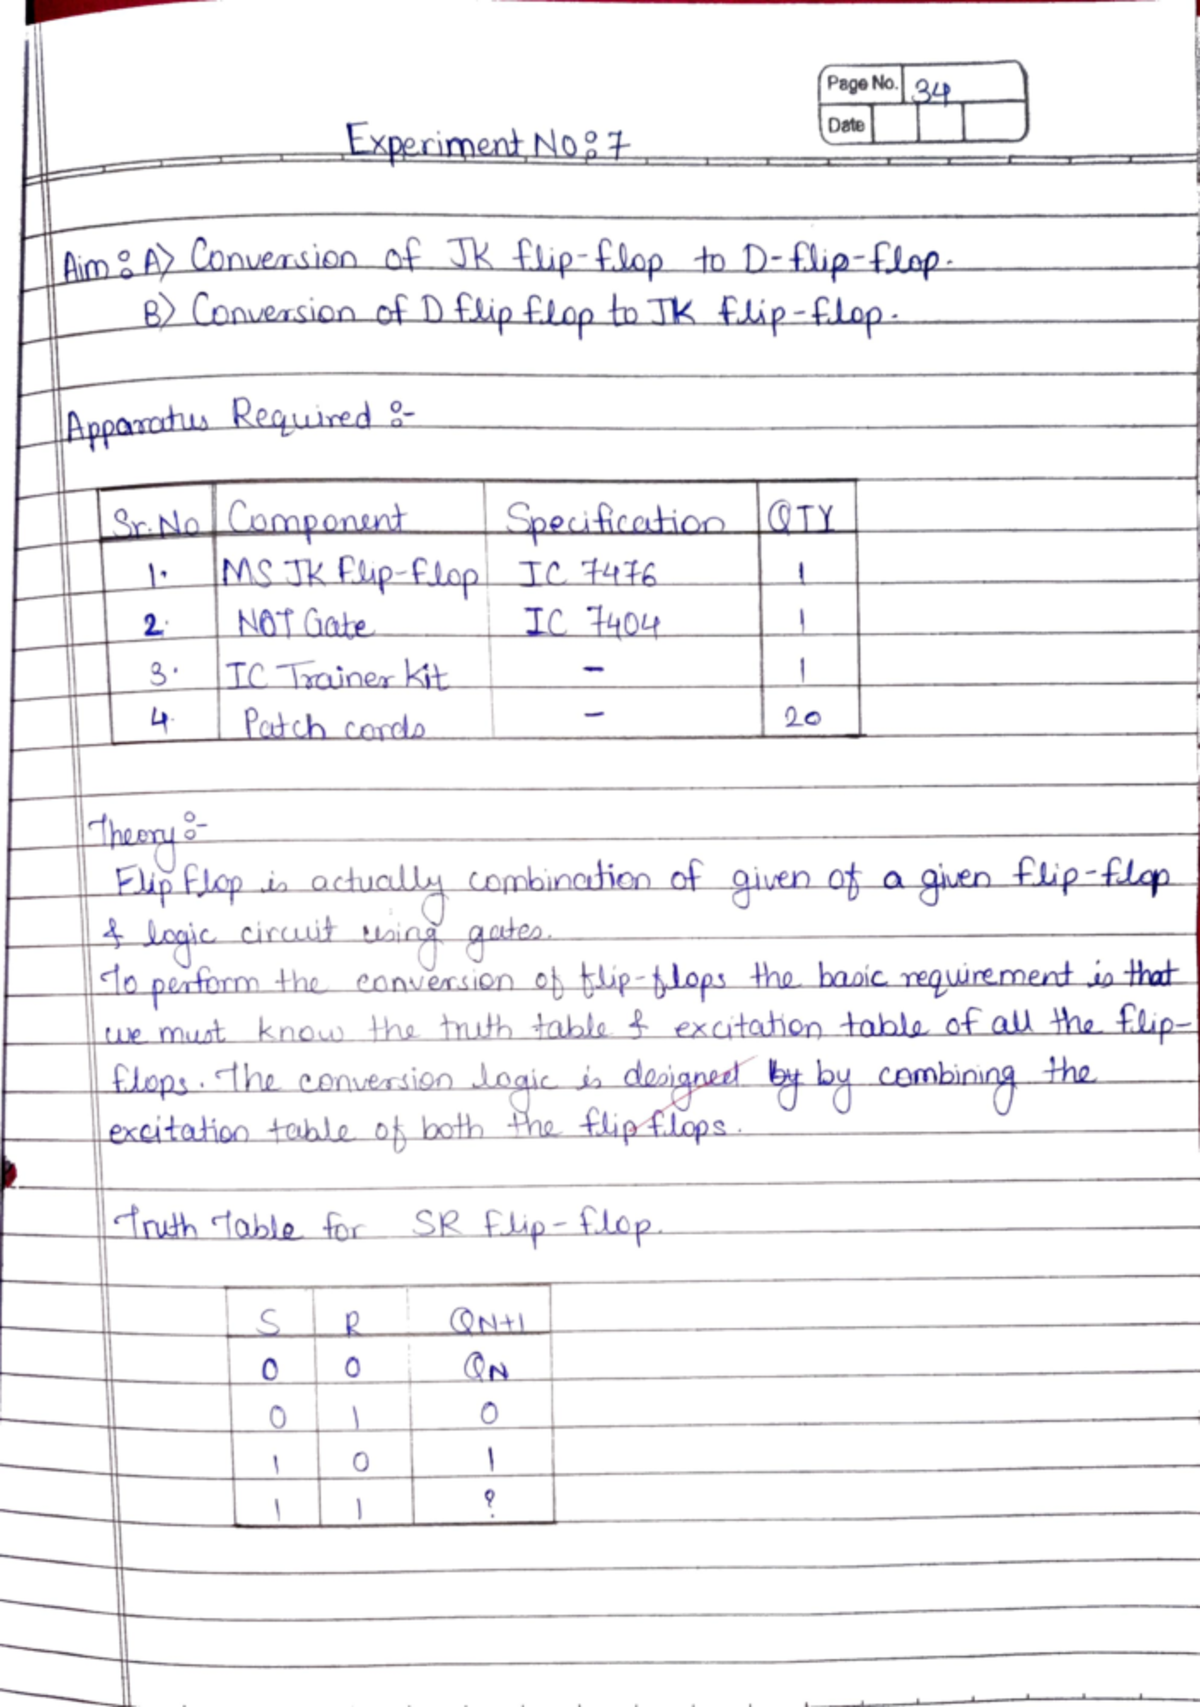 Page No. 34
Date
Experiment No: 7
Aim: A) Conversion of JK flip-flop to D-flip-flop.
B) Conversion of D flip flop to JK flip-flop.
Apparatus Required :-
Sr.No Component Specification QTY
1. MS JK flip-flop IC 7476 1
2. NOT Gate IC 7404 1
3. IC Trainer kit - 1
4. Patch cords - 20
Theory :-
Flip flop is actually combination of given of a given flip-flop
& logic circuit using gates.
To perform the conversion of flip-flops the basic requirement is that
we must know the truth table & excitation table of all the flip-
flops. The conversion logic is designed by by combining the
excitation table of both the flip flops.
Truth Table for SR flip-flop.
S R QN+1
0 0 QN
0 1 0
1 0 1
1 1 ?